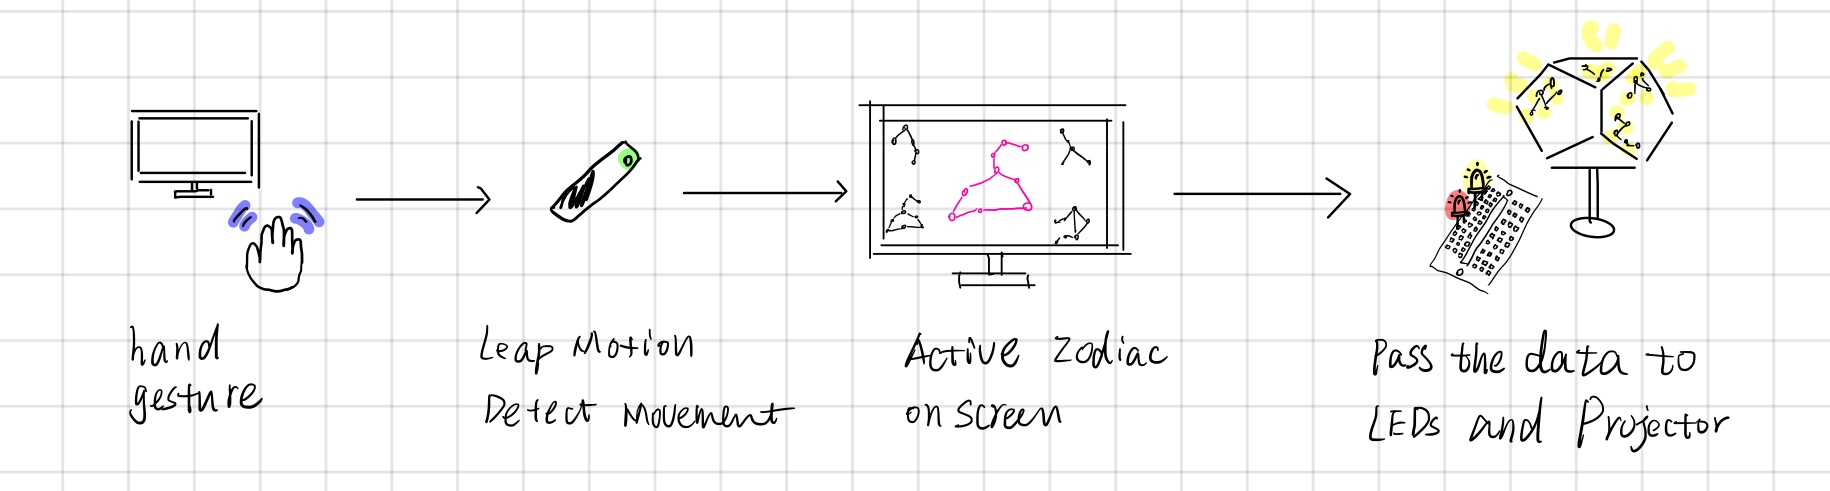 hand
gesture
Leap Motion
Detect Movement
Active Zodiac
on screen
Pass the data to
LEDs and Projector